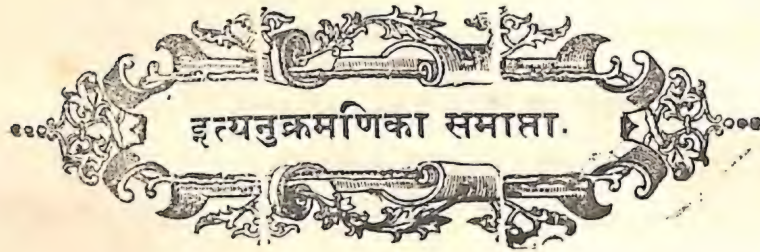 इत्यनुक्रमणिका समाप्ता.